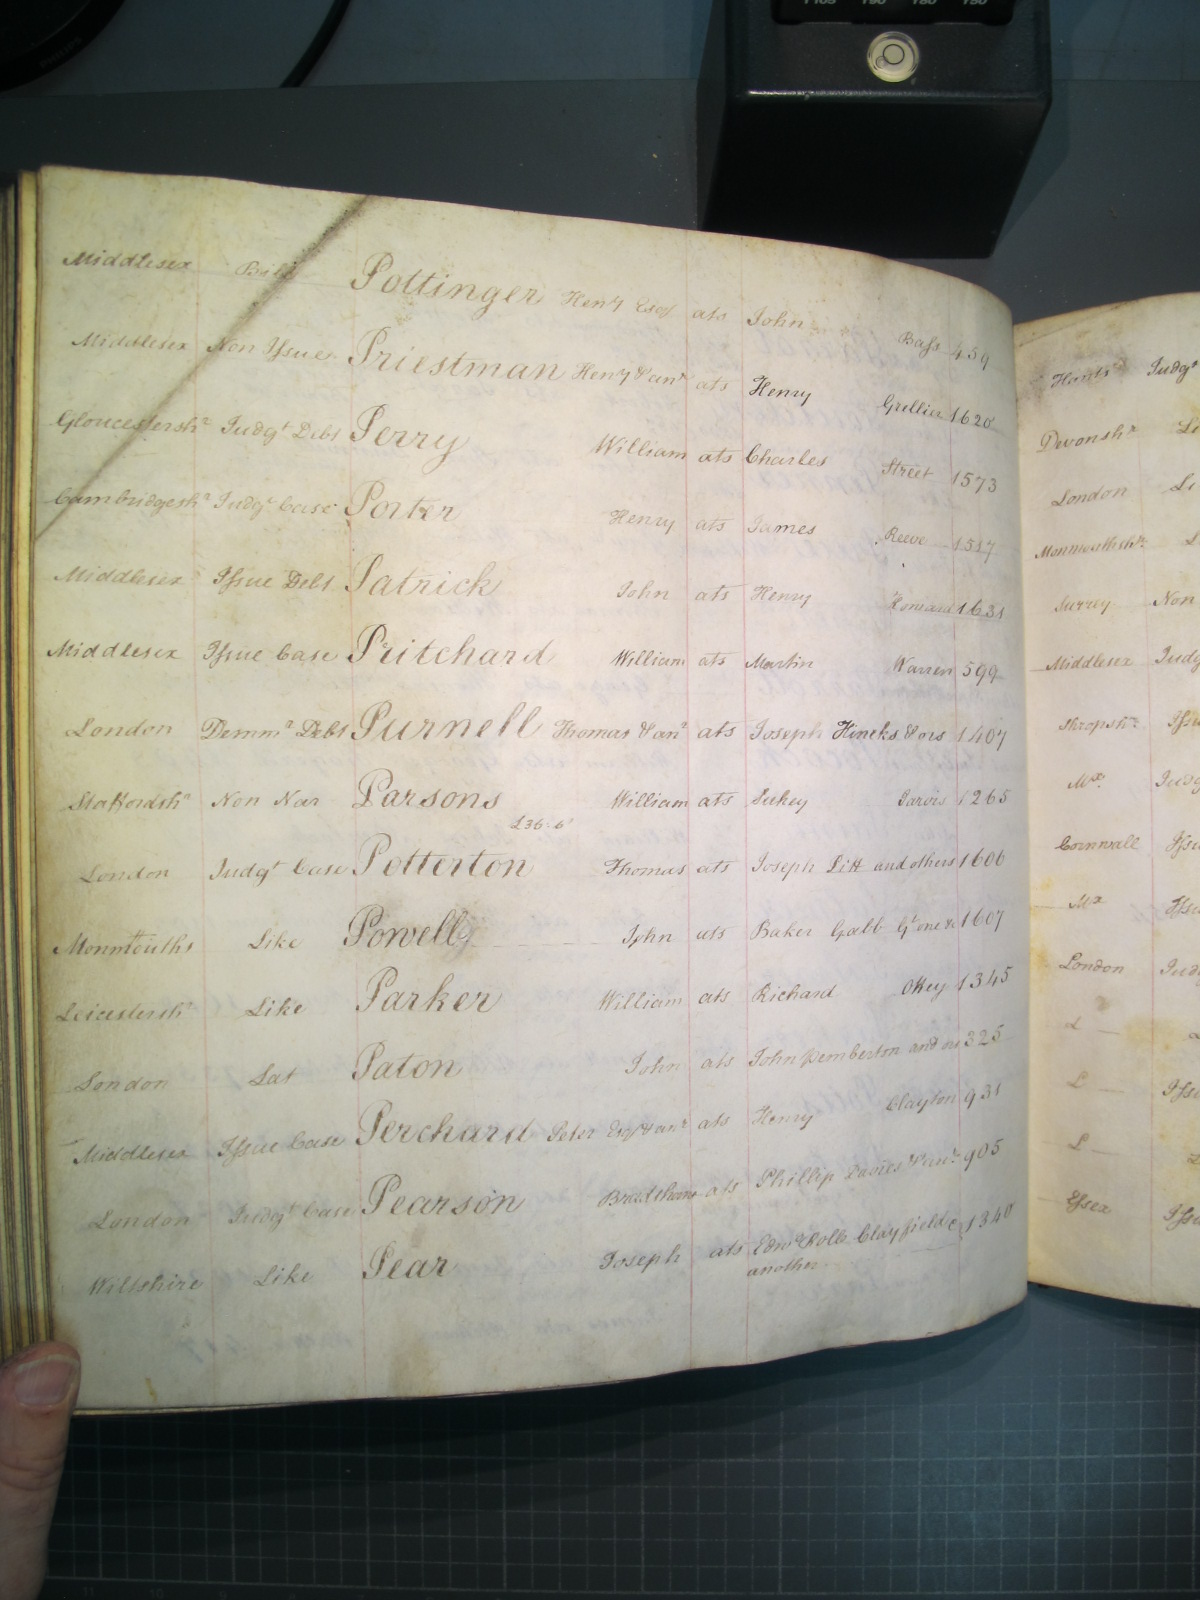 Middlesex Bill Pottinger Henry Esqr ats John Bass 459
Middlesex Non Issue Priestman Heny & anr ats Henry Grellier 1620
Gloucestershr Judgt Debt Perry William ats Charles Street 1573
Cambridgeshr Judgt Case Porter Henry ats James Reeve 1517
Middlesex Issue Debt Patrick John ats Henry 1631
Middlesex Issue Case Pritchard William ats Martin Warren 599
London Demmr Debt Purnell Thomas & anr ats Joseph Hincks & ors 1407
Staffordshr Non Nar Parsons William ats Sukey Jarvis 1265
£36.6
London Judgt Case Potterton Thomas ats Joseph Litt and others 1606
Monmouths Like Powell John ats Baker Gabb Gt one &c 1607
Leicestershr Like Parker William ats Richard Okey 1345
London Sat Paton John ats John Pemberton and ors 325
Middlesex Issue Case Perchard Peter Esqr & anr ats Henry Clayton 931
London Judgt Case Pearson Bradshaw ats Phillip Davies & anr 905
Wiltshire Like Pear Joseph ats Edwd Rolle Clayfield & 1340
another
Hants Judgt
Devonshr
London
Monmouthshr
Surrey Non
Middlesex Judg
Shropshr
Mx Judg
Cornwall
Mx
London Judg
L
L
L
Essex